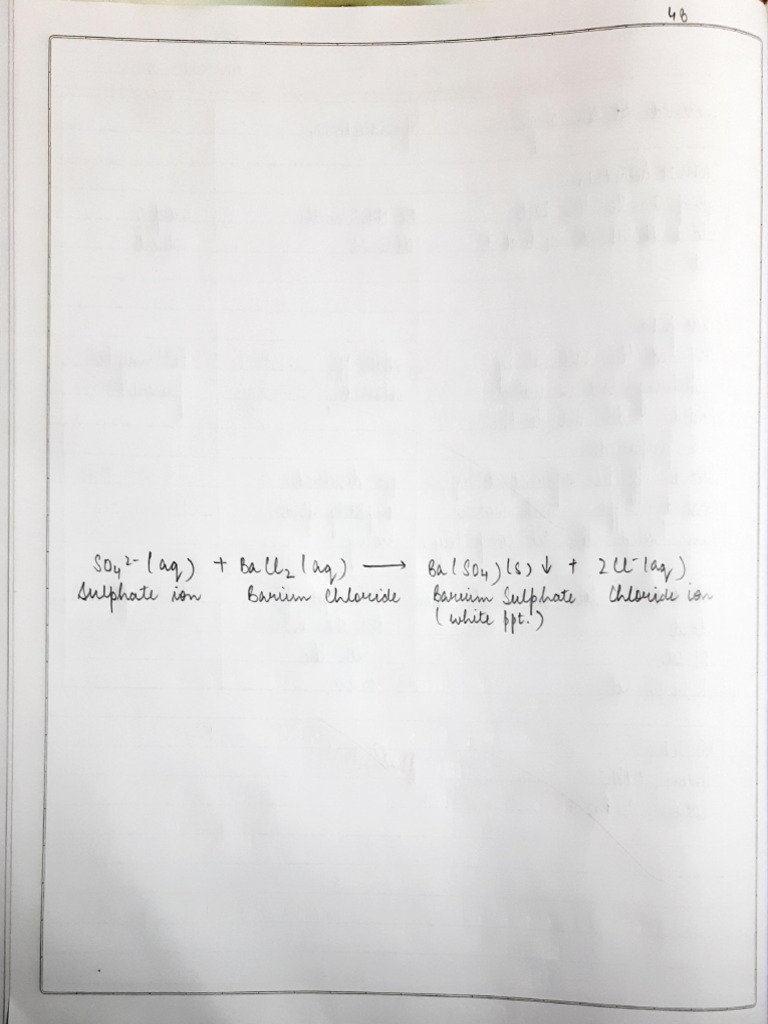 48
SO₄²⁻(aq) + BaCl₂(aq) ⟶ Ba(SO₄)(s)↓ + 2Cl⁻(aq)
Sulphate ion Barium Chloride Barium Sulphate Chloride ion
(white ppt.)